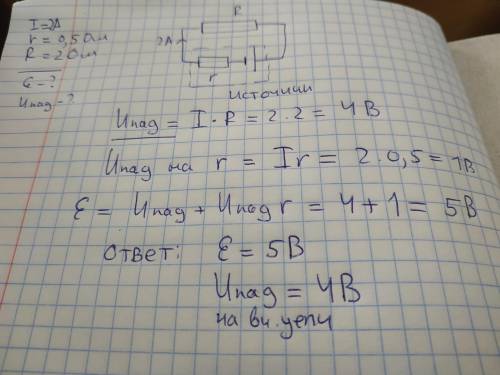 I=2А
r = 0,5 Ом
R = 2 Ом
ε - ?
Uпад - ?
R
2А
r
источник
Uпад = I · R = 2 · 2 = 4 В
Uпад на r = Ir = 2 · 0,5 = 1В
ε = Uпад + Uпад r = 4 + 1 = 5В
Ответ: ε = 5В
Uпад = 4В
на вн. цепи